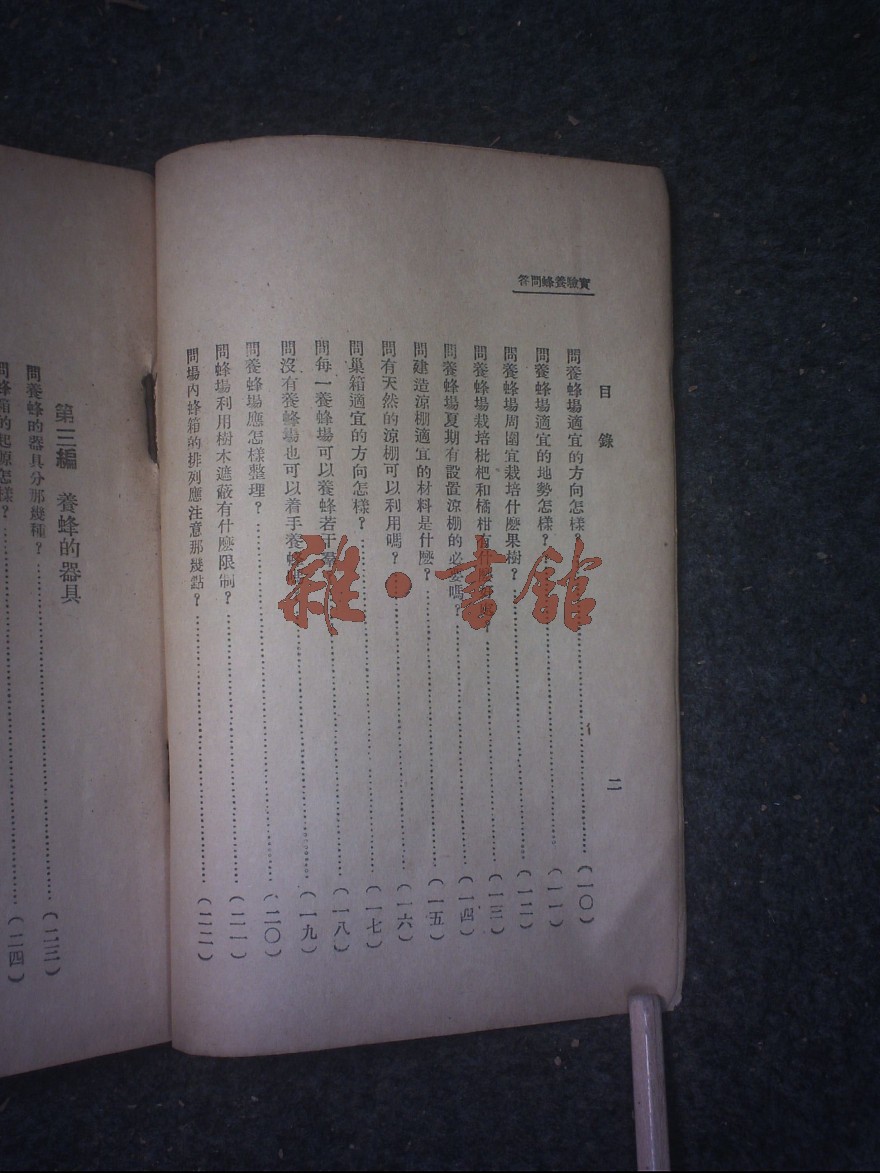 實驗養蜂問答
目錄
二
問養蜂場適宜的方向怎樣？……(一〇)
問養蜂場適宜的地勢怎樣？……(一一)
問養蜂場周圍宜栽培什麽果樹？……(一二)
問養蜂場栽培枇杷和橘柑有什麽……(一三)
問養蜂場夏期有設置涼棚的必要嗎？……(一四)
問建造涼棚適宜的材料是什麽？……(一五)
問有天然的涼棚可以利用嗎？……(一六)
問巢箱適宜的方向怎樣？……(一七)
問每一養蜂場可以養蜂若干羣……(一八)
問沒有養蜂場也可以着手養蜂……(一九)
問養蜂場應怎樣整理？……(二〇)
問蜂場利用樹木遮蔽有什麽限制？……(二一)
問場內蜂箱的排列應注意那幾點？……(二二)
第三編 養蜂的器具
問養蜂的器具分那幾種？……(二三)
問蜂箱的起源怎樣？……(二四)
雜·書館